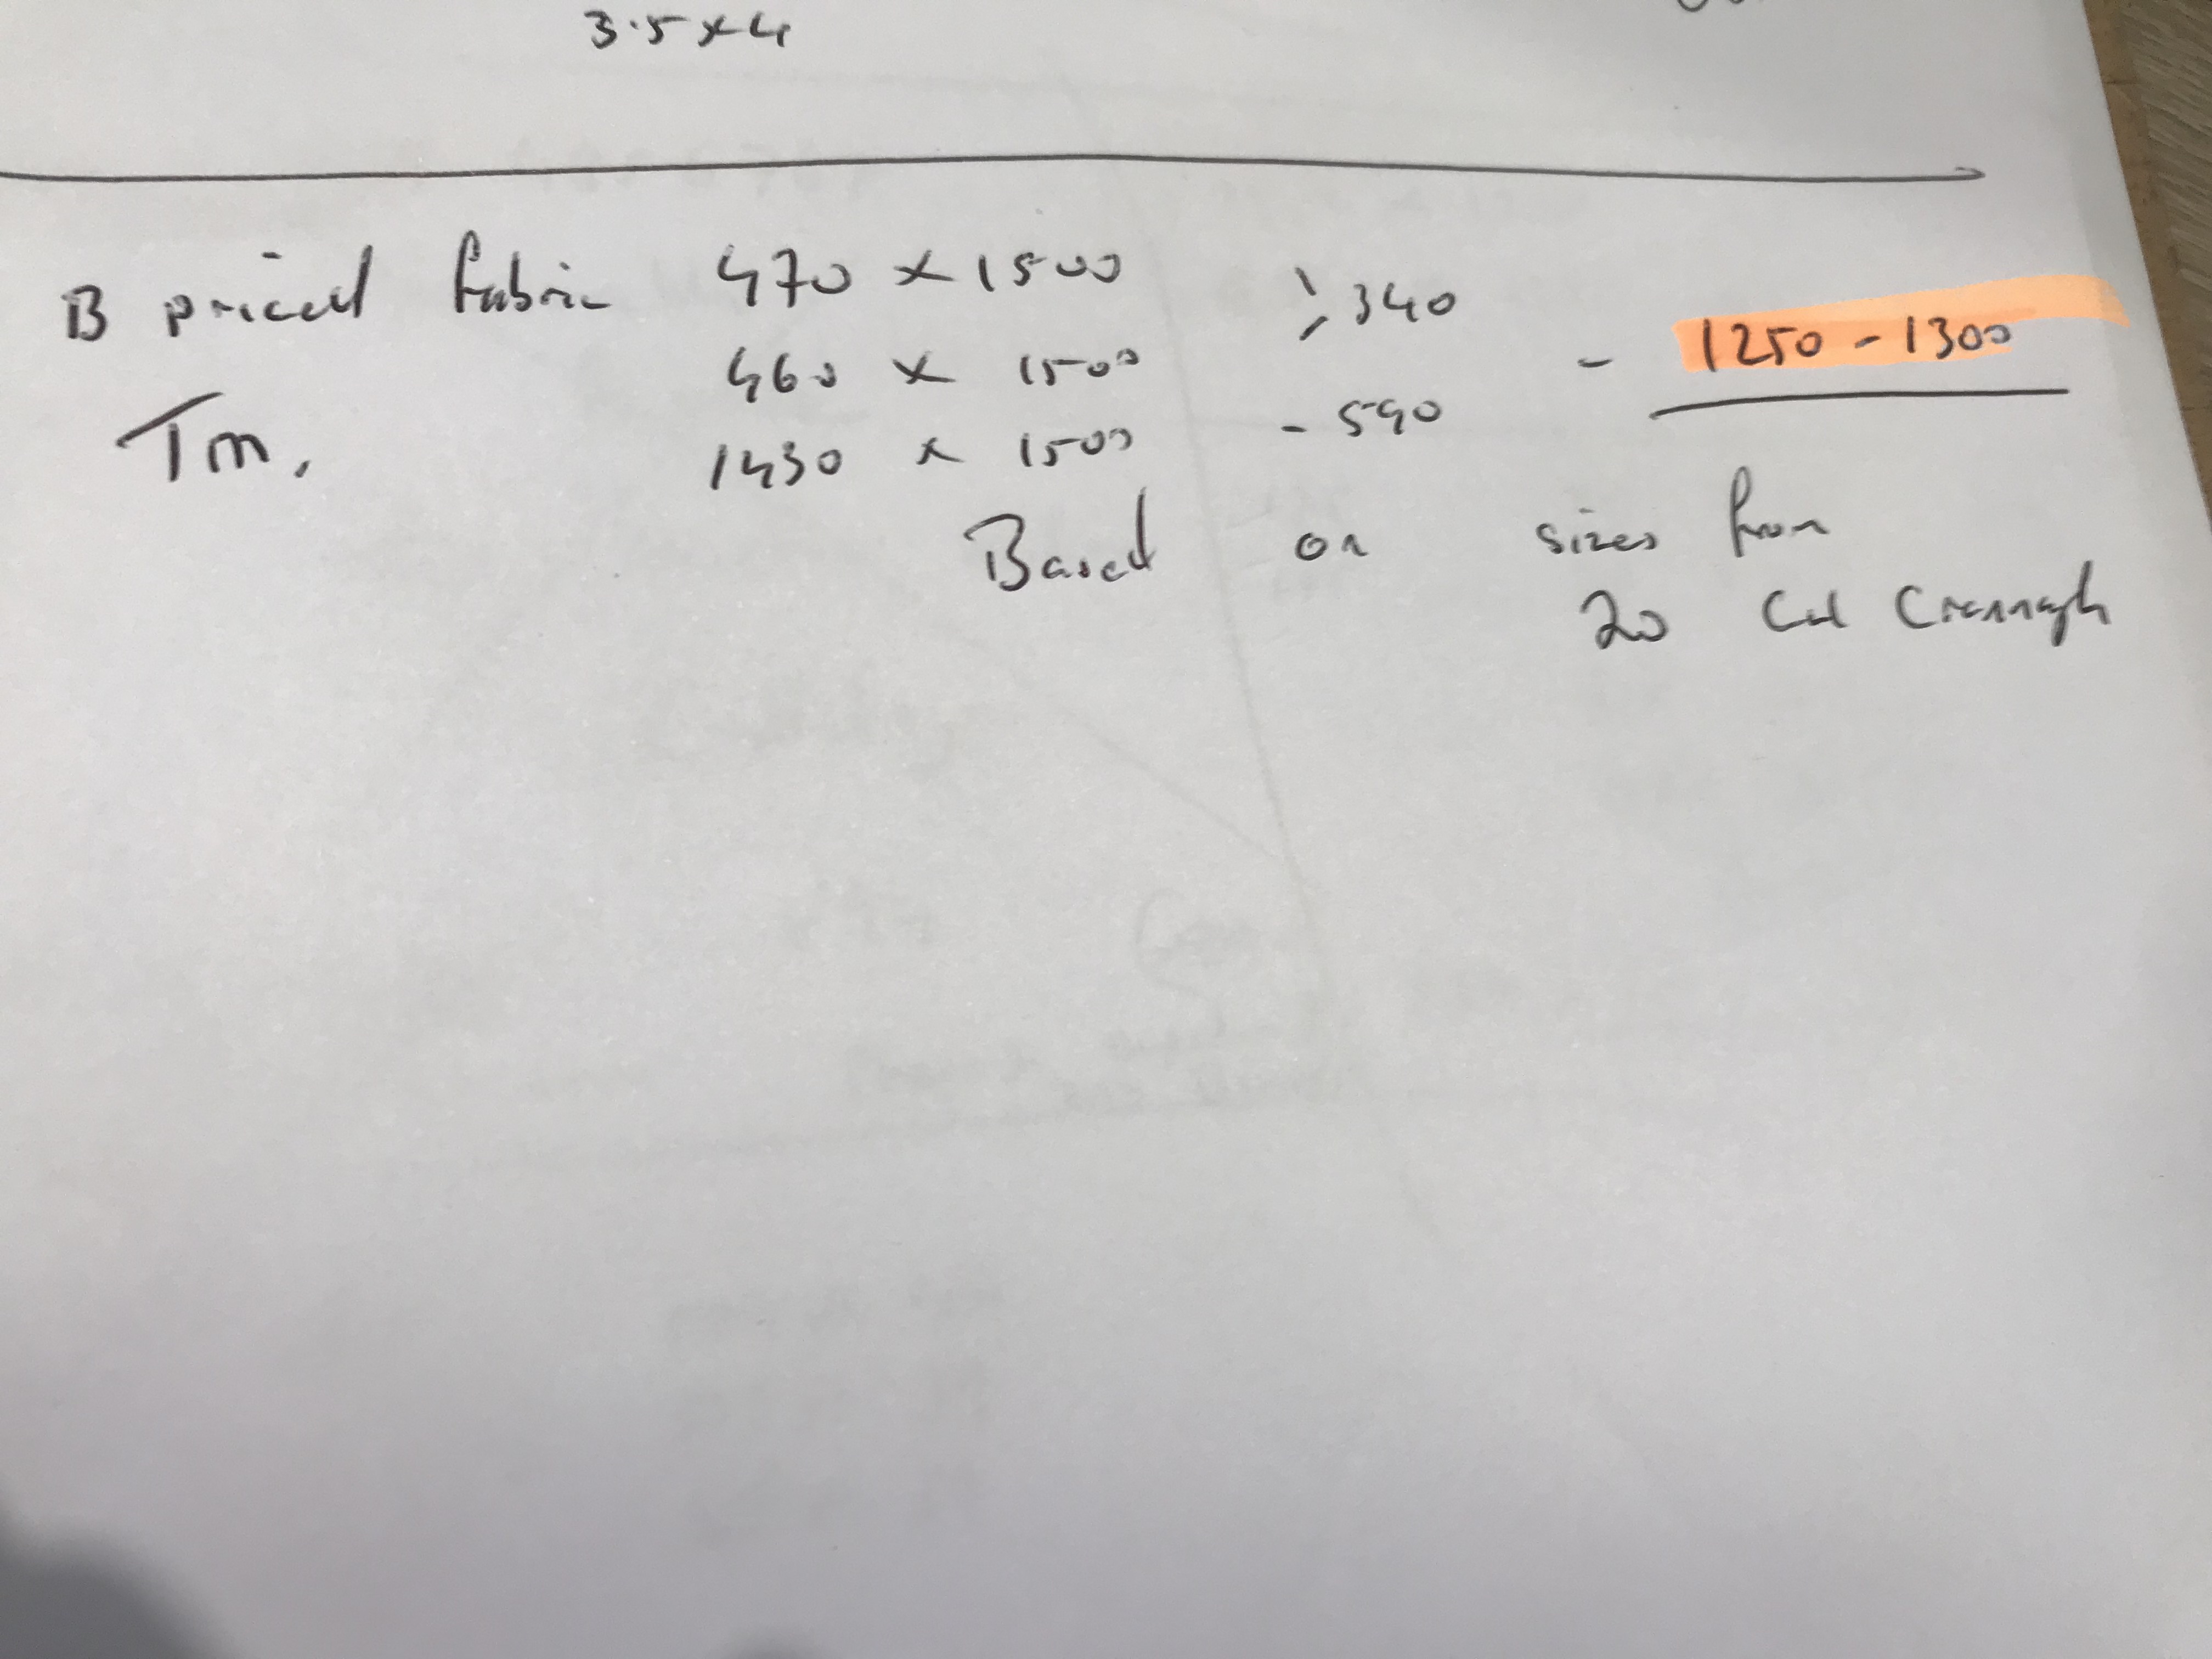 3.5 x 4
B priced fabric 470 x 1500 > 340
460 x 1500 - 1250 - 1300
Tm. 1430 x 1500 - 590
Based on sizes from
20 Cul Crannagh